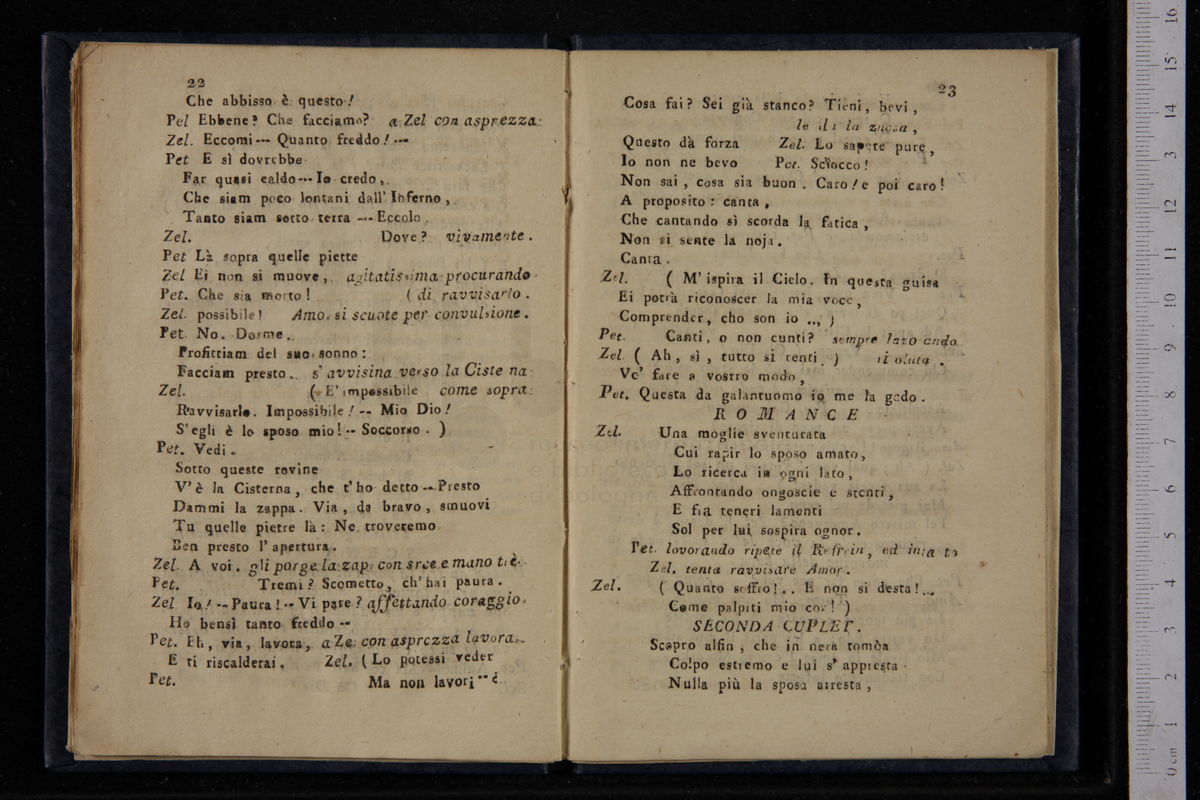 22
Che abbisso è questo!
Pel Ebbene? Che facciamo? a Zel con asprezza.
Zel. Eccomi --- Quanto freddo! ---
Pet E sì dovrebbe
Far quasi caldo --- Io credo,
Che siam poco lontani dall' Inferno,
Tanto siam sotto terra --- Eccolo.
Zel. Dove? vivamente.
Pet Là sopra quelle piette
Zel Ei non si muove, agitatissima procurando
Pet. Che sia morto! ( di ravvisarlo.
Zel. possibile! Amo. si scuote per convulsione.
Pet. No. Dorme.
Profittiam del suo sonno:
Facciam presto. s' avvisina verso la Ciste na
Zel. ( E' impossibile come sopra
Ravvisarlo. Impossibile! -- Mio Dio!
S' egli è lo sposo mio! -- Soccorso. )
Pet. Vedi.
Sotto queste rovine
V' è la Cisterna, che t' ho detto -- Presto
Dammi la zappa. Via, da bravo, smuovi
Tu quelle pietre là: Ne troveremo
Ben presto l' apertura.
Zel. A voi. gli porge la zap. con e mano
Pet. Tremi? Scometto, ch' hai paura.
Zel Io! -- Paura! -- Vi pare? affettando coraggio.
Ho bensì tanto freddo --
Pet. Eh, via, lavora, a Ze. con asprezza lavora.
E ti riscalderai. Zel. ( Lo potessi veder
Pet. Ma non lavori
23
Cosa fai? Sei già stanco? Tieni, bevi,
le la zucca,
Questo dà forza Zel. Lo sapete pure,
Io non ne bevo Pet. Sciocco!
Non sai, cosa sia buon. Caro! e poi caro!
A proposito: canta,
Che cantando sì scorda la fatica,
Non si sente la noja.
Canta.
Zel. ( M' ispira il Cielo. In questa guisa
Ei potrà riconoscer la mia voce,
Comprender, cho son io .., )
Pet. Canti, o non cunti? sempre
Zel. ( Ah, sì, tutto si tenti. )
Vo' fare a vostro modo,
Pet. Questa da galantuomo io me la godo.
ROMANCE
Zel. Una moglie sventurata
Cui rapir lo sposo amato,
Lo ricerca in ogni lato,
Affrontando ongoscie e stenti,
E fra teneri lamenti
Sol per lui sospira ognor.
Pet. lovorando ripete il Refrein, ed
Zel. tenta ravvisare Amor.
Zel. ( Quanto soffro! .. E non si desta! ...
Come palpiti mio cor! )
SECONDA CUPLET.
Scopro alfin, che in nera tomba
Colpo estremo e lui s' appresta
Nulla più la sposa arresta,